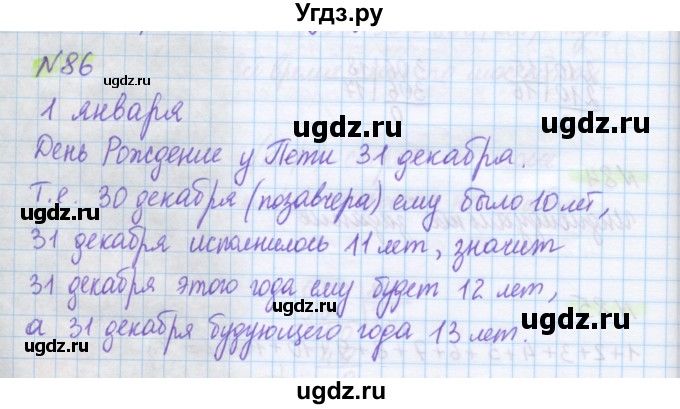 Угдз.ру
№86
ugdz.ru
1 января
ugdz.ru
ugdz.ru
День Рождение у Пети 31 декабря.
Т.е. 30 декабря (позавчера) ему было 10 лет,
ugdz.ru
ugdz.ru
31 декабря исполнилось 11 лет, значит
31 декабря этого года ему будет 12 лет,
ugdz.ru
ugdz.ru
а 31 декабря будующего года 13 лет.
ugdz.ru
ugdz.ru